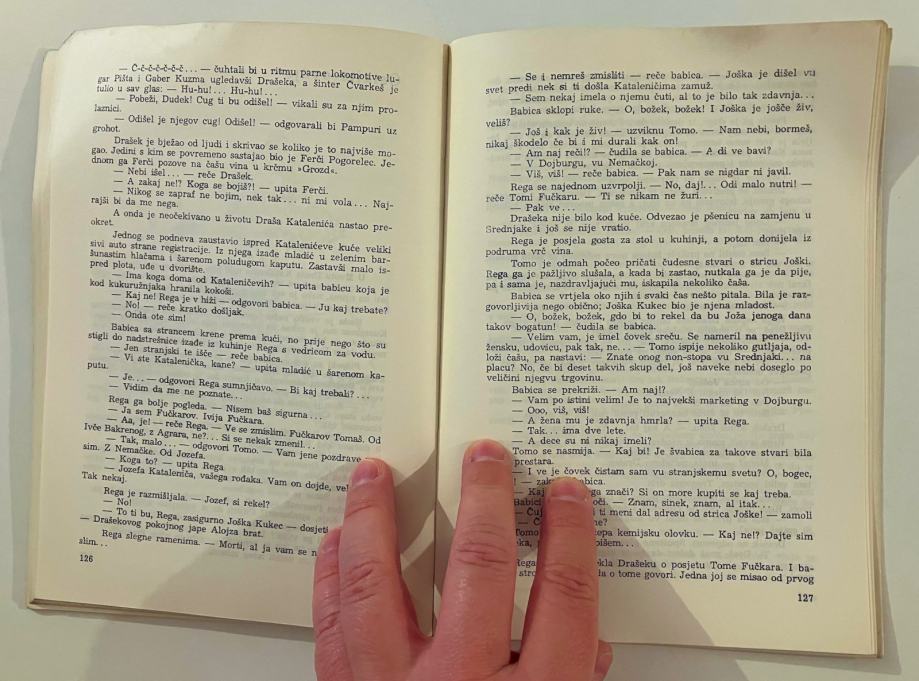 — Č-č-č-č-č-č... — čuhtali bi u ritmu parne lokomotive lu-
gar Pišta i Gaber Kuzma ugledavši Drašeka, a šinter Čvarkeš je
tulio u sav glas: — Hu-hu!... Hu-hu!...
— Pobeži, Dudek! Cug ti bu odišel! — vikali su za njim pro-
laznici.
— Odišel je njegov cug! Odišel! — odgovarali bi Pampuri uz
grohot.
Drašek je bježao od ljudi i skrivao se koliko je to najviše mo-
gao. Jedini s kim se povremeno sastajao bio je Ferči Pogorelec. Je-
dnom ga Ferči pozove na čašu vina u krčmu »Grozd«.
— Nebi išel... — reče Drašek.
— A zakaj ne!? Koga se bojiš?! — upita Ferči.
— Nikog se zapraf ne bojim, nek tak... ni mi vola... Naj-
rajši bi da me nega.
A onda je neočekivano u životu Draša Katalenića nastao pre-
okret.
Jednog se podneva zaustavio ispred Katalenićeve kuće veliki
sivi auto strane registracije. Iz njega izađe mladić u zelenim bar-
šunastim hlačama i šarenom poludugom kaputu. Zastavši malo is-
pred plota, uđe u dvorište.
— Ima koga doma od Kataleničevih? — upita babicu koja je
kod kukuružnjaka hranila kokoši.
— Kaj ne! Rega je v hiži — odgovori babica. — Ju kaj trebate?
— No! — reče kratko došljak.
— Onda ote sim!
Babica sa strancem krene prema kući, no prije nego što su
stigli do nadstrešnice izađe iz kuhinje Rega s vedricom za vodu.
— Jen stranjski te išče — reče babica.
— Vi ste Katalenička, kane? — upita mladić u šarenom ka-
putu.
— Je... — odgovori Rega sumnjičavo. — Bi kaj trebali?...
— Vidim da me ne poznate...
Rega ga bolje pogleda. — Nisem baš sigurna...
— Ja sem Fučkarov. Ivija Fučkara.
— Aa, je! — reče Rega. — Ve se zmislim. Fučkarov Tomaš. Od
Ivče Bakrenog, z Agrara, ne?... Si se nekak zmenil...
— Tak, malo... — odgovori Tomo. — Vam jene pozdrave
sim. Z Nemačke. Od Jozefa.
— Koga to? — upita Rega.
— Jozefa Kataleniča, vašega rođaka. Vam on dojde,
Tak nekaj.
Rega je razmišljala. — Jozef, si rekel?
— No!
— To ti bu, Rega, zasigurno Joška Kukec — dosjeti
— Drašekovog pokojnog jape Alojza brat.
Rega slegne ramenima. — Morti, al ja vam se
slim...
126
— Se i nemreš zmisliti — reče babica. — Joška je dišel vu
svet predi nek si ti došla Kataleničima zamuž.
— Sem nekaj imela o njemu čuti, al to je bilo tak zdavnja...
Babica sklopi ruke. — O, božek, božek! I Joška je jošče živ,
veliš?
— Još i kak je živ! — uzviknu Tomo. — Nam nebi, bormeš,
nikaj škodelo če bi i mi durali kak on!
— Am naj reči!? — čudila se babica. — A di ve bavi?
— V Dojburgu, vu Nemačkoj.
— Viš, viš! — reče babica. — Pak nam se nigdar ni javil.
Rega se najednom uzvrpolji. — No, daj!... Odi malo nutri! —
reče Tomi Fučkaru. — Ti se nikam ne žuri...
— Pak ve...
Drašeka nije bilo kod kuće. Odvezao je pšenicu na zamjenu u
Srednjake i još se nije vratio.
Rega je posjela gosta za stol u kuhinji, a potom donijela iz
podruma vrč vina.
Tomo je odmah počeo pričati čudesne stvari o stricu Joški.
Rega ga je pažljivo slušala, a kada bi zastao, nutkala ga je da pije,
pa i sama je, nazdravljajući mu, iskapila nekoliko čaša.
Babica se vrtjela oko njih i svaki čas nešto pitala. Bila je raz-
govorljivija nego obično; Joška Kukec bio je njena mladost.
— O, božek, božek, gdo bi to rekel da bu Joža jenoga dana
takov bogatun! — čudila se babica.
— Velim vam, je imel čovek sreču. Se nameril na penežljivu
žensku, udovicu, pak tak, ne... — Tomo ispije nekoliko gutljaja, od-
loži čašu, pa nastavi: — Znate onog non-stopa vu Srednjaki... na
placu? No, če bi deset takvih skup del, još naveke nebi doseglo po
veličini njegvu trgovinu.
Babica se prekriži. — Am naj!?
— Vam po istini velim! Je to najvekši marketing v Dojburgu.
— Ooo, viš, viš!
— A žena mu je zdavnja hmrla? — upita Rega.
— Tak... ima dve lete.
— A dece su ni nikaj imeli?
Tomo se nasmija. — Kaj bi! Je švabica za takove stvari bila
prestara.
— I ve je čovek čistam sam vu stranjskemu svetu? O, bogec,
znači? Si on more kupiti se kaj treba.
— Znam, sinek, znam, al itak...
ti meni dal adresu od strica Joške! — zamoli
kemijsku olovku. — Kaj ne!? Dajte sim
Drašeku o posjetu Tome Fučkara. I ba-
o tome govori. Jedna joj se misao od prvog
127